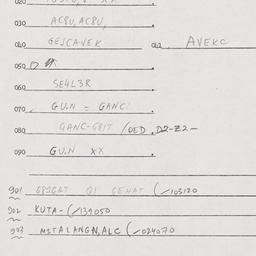 020
030 ACBU, ACBU,
040 GEJCAVEK 041 AVEKC
050
060 SE4L3R
070 GU.N = GANC
080 GANC-GBIT /DED. D2-Z2-
090 GU.N XX
901 (/103120
902 KUTA-(/139050
903 METALANGN,ALC (/024070